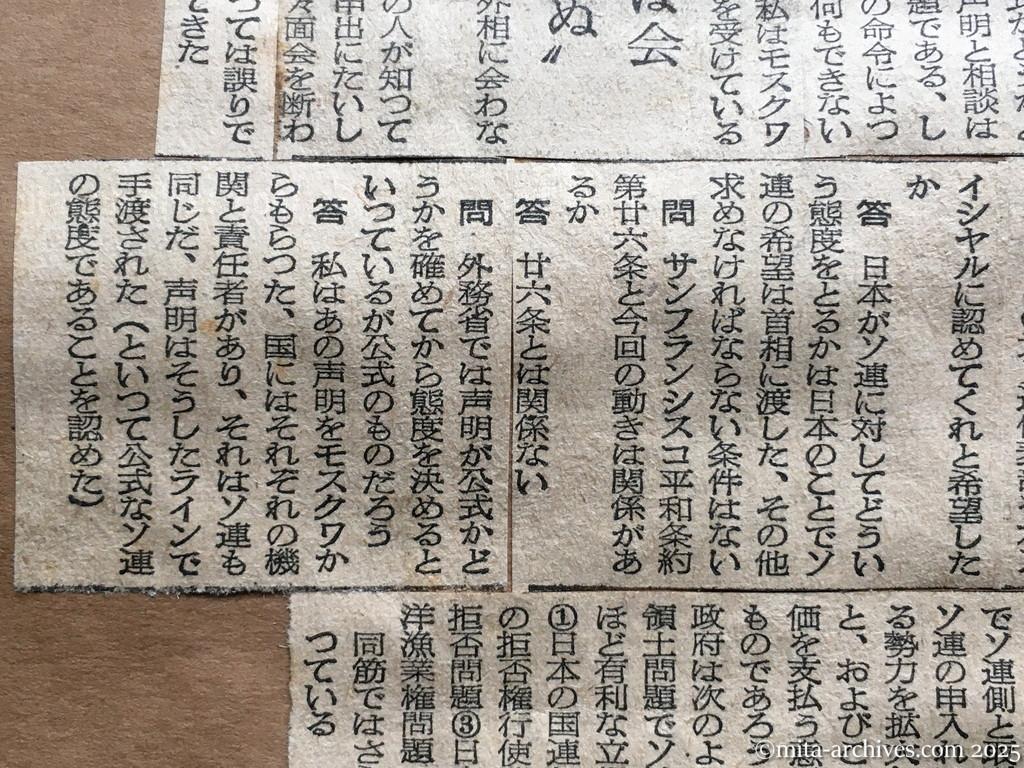 声明と相談は
題である、し
の命令によつ
何もできない
私はモスクワ
を受けている
は会
ぬ〟
外相に会わな
の人が知つて
申出にたいし
々面会を断わ
つては誤りで
できた
イシヤルに認めてくれと希望した
か
答 日本がソ連に対してどうい
う態度をとるかは日本のことでソ
連の希望は首相に渡した、その他
求めなければならない条件はない
問 サンフランシスコ平和条約
第廿六条と今回の動きは関係があ
るか
答 廿六条とは関係ない
問 外務省では声明が公式かど
うかを確めてから態度を決めると
いつているが公式のものだろう
答 私はあの声明をモスクワか
らもらつた、国にはそれぞれの機
関と責任者があり、それはソ連も
同じだ、声明はそうしたラインで
手渡された（といつて公式なソ連
の態度であることを認めた）
でソ連側と
ソ連の申入れ
る勢力を拡
と、およびこ
価を支払う意
ものであろう
政府は次のよ
領土問題でソ
ほど有利な立
①日本の国連
の拒否権行使
拒否問題③日
洋漁業権問題
同筋ではさ
つている
©mita-archives.com 2025